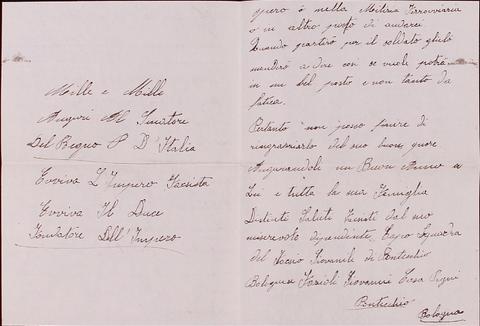 Mille e Mille
Auguri Al Senatore
Del Regno D'Italia
Evviva L'Impero Fascista
Evviva Il Duce
Fondatore Dell'Impero
spero è nella Milizia Ferrovviaria
o in altro posto di andarci
Quando partirò per il soldato glielo
manderò a dire così se vuole potrà
in un bel posto e non tanto da
fatica.
Pertanto non posso fare di
ringraziarlo del suo buon quore
Augurandoli un Buon Anno a
Lui e tutta la sua Famiglia
Distinti Saluti Fascisti dal suo
miserevole dipendente Capo Squadra
del Fascio Giovanile di Pontecchio
Bolognese Giovanni Casa
Pontecchio
Bologna